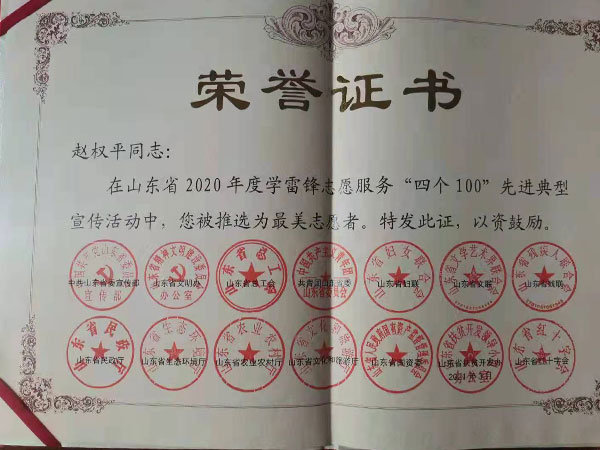 荣誉证书
赵权平同志：
在山东省2020年度学雷锋志愿服务“四个100”先进典型
宣传活动中，您被推选为最美志愿者。特发此证，以资鼓励。
中共山东省委宣传部 山东省文明办 山东省总工会 共青团山东省委 山东省妇联 山东省文联 山东省残联
宣传部 办公室
山东省民政厅 山东省生态环境厅 山东省农业农村厅 山东省文化和旅游厅 山东省国资委 山东省扶贫开发办 山东省红十字会